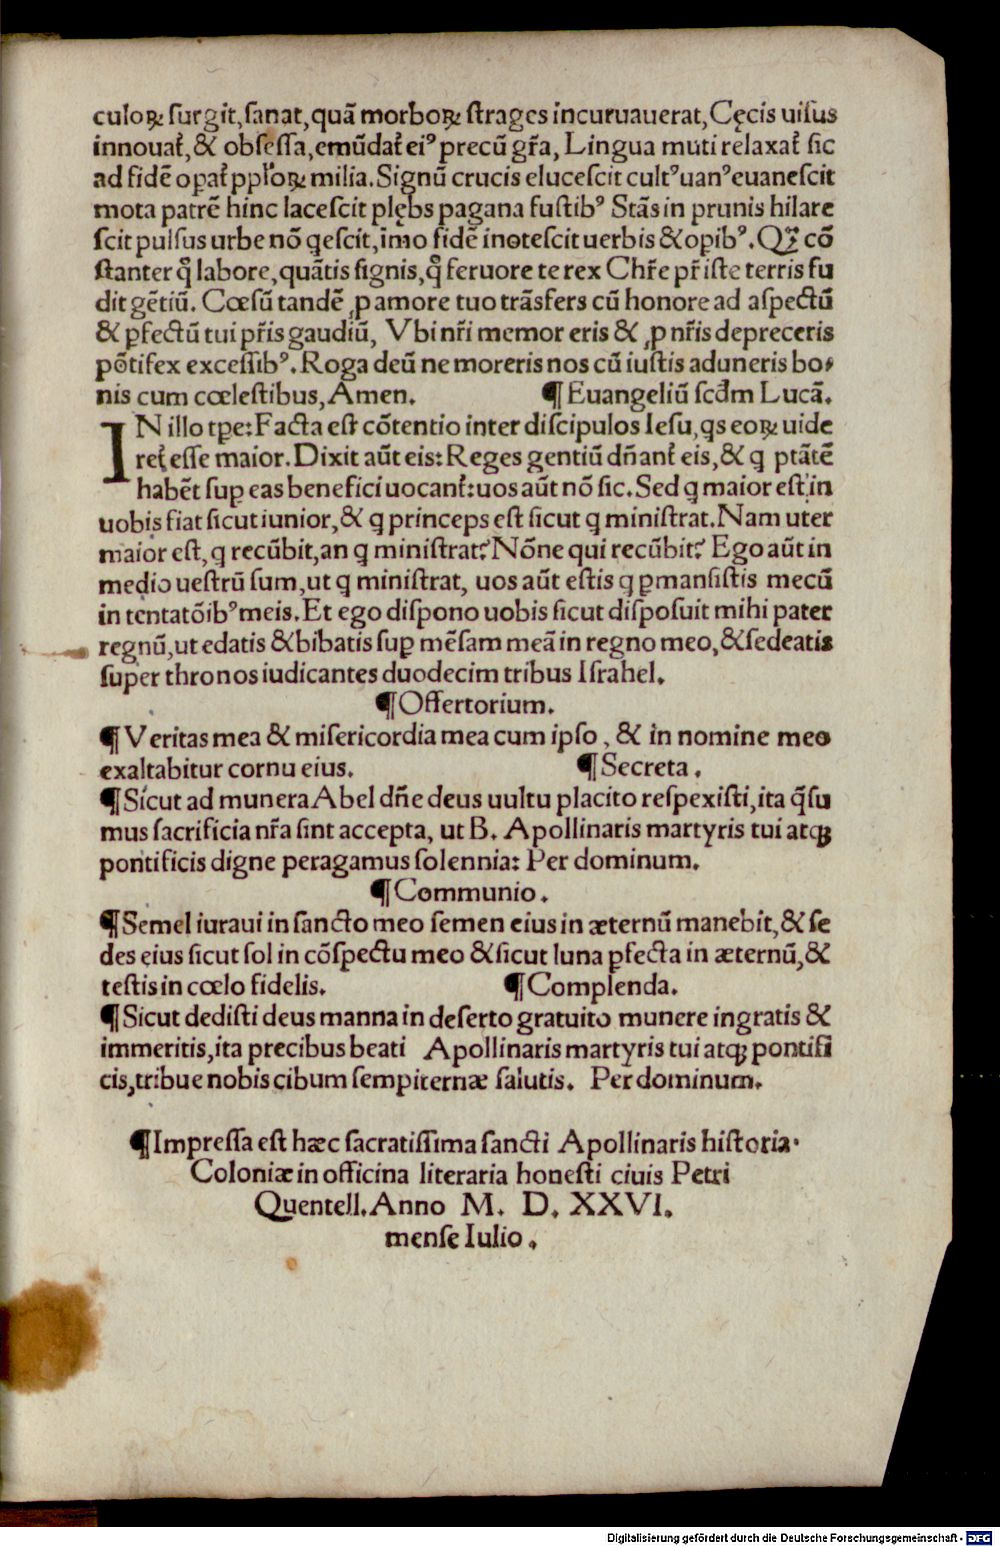 culoꝝ ſurgit,ſanat,quã morboꝝ ſtrages incuruauerat,Cęcis uiſus
innouat᷑,& obſeſſa,emũdat᷑ eiꝰ precũ gr̃a, Lingua muti relaxat᷑ ſic
ad fidẽ opat᷑ ppl̃oꝝ milia.Signũ crucis eluceſcit cultꝰuanꝰeuaneſcit
mota patrẽ hinc laceſcit plębs pagana fuſtibꝰ Stãs in prunis hilare
ſcit pulſus urbe nõ ꝗeſcit,ĩmo fidẽ inoteſcit uerbis &oꝑibꝰ. Qꝫ̃ cõ
ſtanter q̃ labore,quãtis ſignis,q̃ feruore te rex Chr̃e pr̃ iſte terris fu
dit gẽtiũ. Cœſũ tandẽ ꝓ amore tuo trãsfers cũ honore ad aſpectũ
& ꝑfectũ tui pr̃is gaudiũ, Vbi nr̃i memor eris & ꝓ nr̃is depreceris
põtifex exceſſibꝰ. Roga deũ ne moreris nos cũ iuſtis aduneris bo⸗
nis cum cœleſtibus, Amen. ¶ Euangeliũ ſcd̃m Lucã.
IN illo tꝑe: Facta eſt cõtentio inter diſcipulos Ieſu, ꝗs eoꝝ uide
ret᷑ eſſe maior. Dixit aũt eis: Reges gentiũ dñant᷑ eis,& ꝗ ptãtẽ
habẽt ſuꝑ eas benefici uocant᷑: uos aũt nõ ſic. Sed ꝗ maior eſt in
uobis fiat ſicut iunior,& ꝗ princeps eſt ſicut ꝗ miniſtrat. Nam uter
maior eſt, ꝗ recũbit, an ꝗ miniſtrat? Nõne qui recũbit? Ego aũt in
medio ueſtrũ ſum, ut ꝗ miniſtrat, uos aũt eſtis ꝗ ꝑmanſiſtis mecũ
in tentatõibꝰ meis. Et ego diſpono uobis ſicut diſpoſuit mihi pater
regnũ, ut edatis &bibatis ſuꝑ mẽſam meã in regno meo, &ſedeatis
ſuper thronos iudicantes duodecim tribus Iſrahel.
¶ Offertorium.
¶ Veritas mea & miſericordia mea cum ipſo, & in nomine meo
exaltabitur cornu eius. ¶ Secreta.
¶ Sicut ad munera Abel dñe deus uultu placito reſpexiſti, ita q̃ſu
mus ſacrificia nr̃a ſint accepta, ut B. Apollinaris martyris tui atqꝫ
pontificis digne peragamus ſolennia: Per dominum.
¶ Communio.
¶ Semel iuraui in ſancto meo ſemen eius in æternũ manebit,& ſe
des eius ſicut ſol in cõſpectu meo &ſicut luna ꝑfecta in æternũ,&
teſtis in cœlo fidelis. ¶ Complenda.
¶ Sicut dediſti deus manna in deſerto gratuito munere ingratis &
immeritis, ita precibus beati Apollinaris martyris tui atqꝫ pontifi
cis, tribue nobis cibum ſempiternæ ſalutis. Per dominum.
¶ Impreſſa eſt hæc ſacratiſſima ſancti Apollinaris hiſtoria·
Coloniæ in officina literaria honeſti ciuis Petri
Quentell. Anno M. D. XXVI.
menſe Iulio.
Digitalisierung gefördert durch die Deutsche Forschungsgemeinschaft - DFG